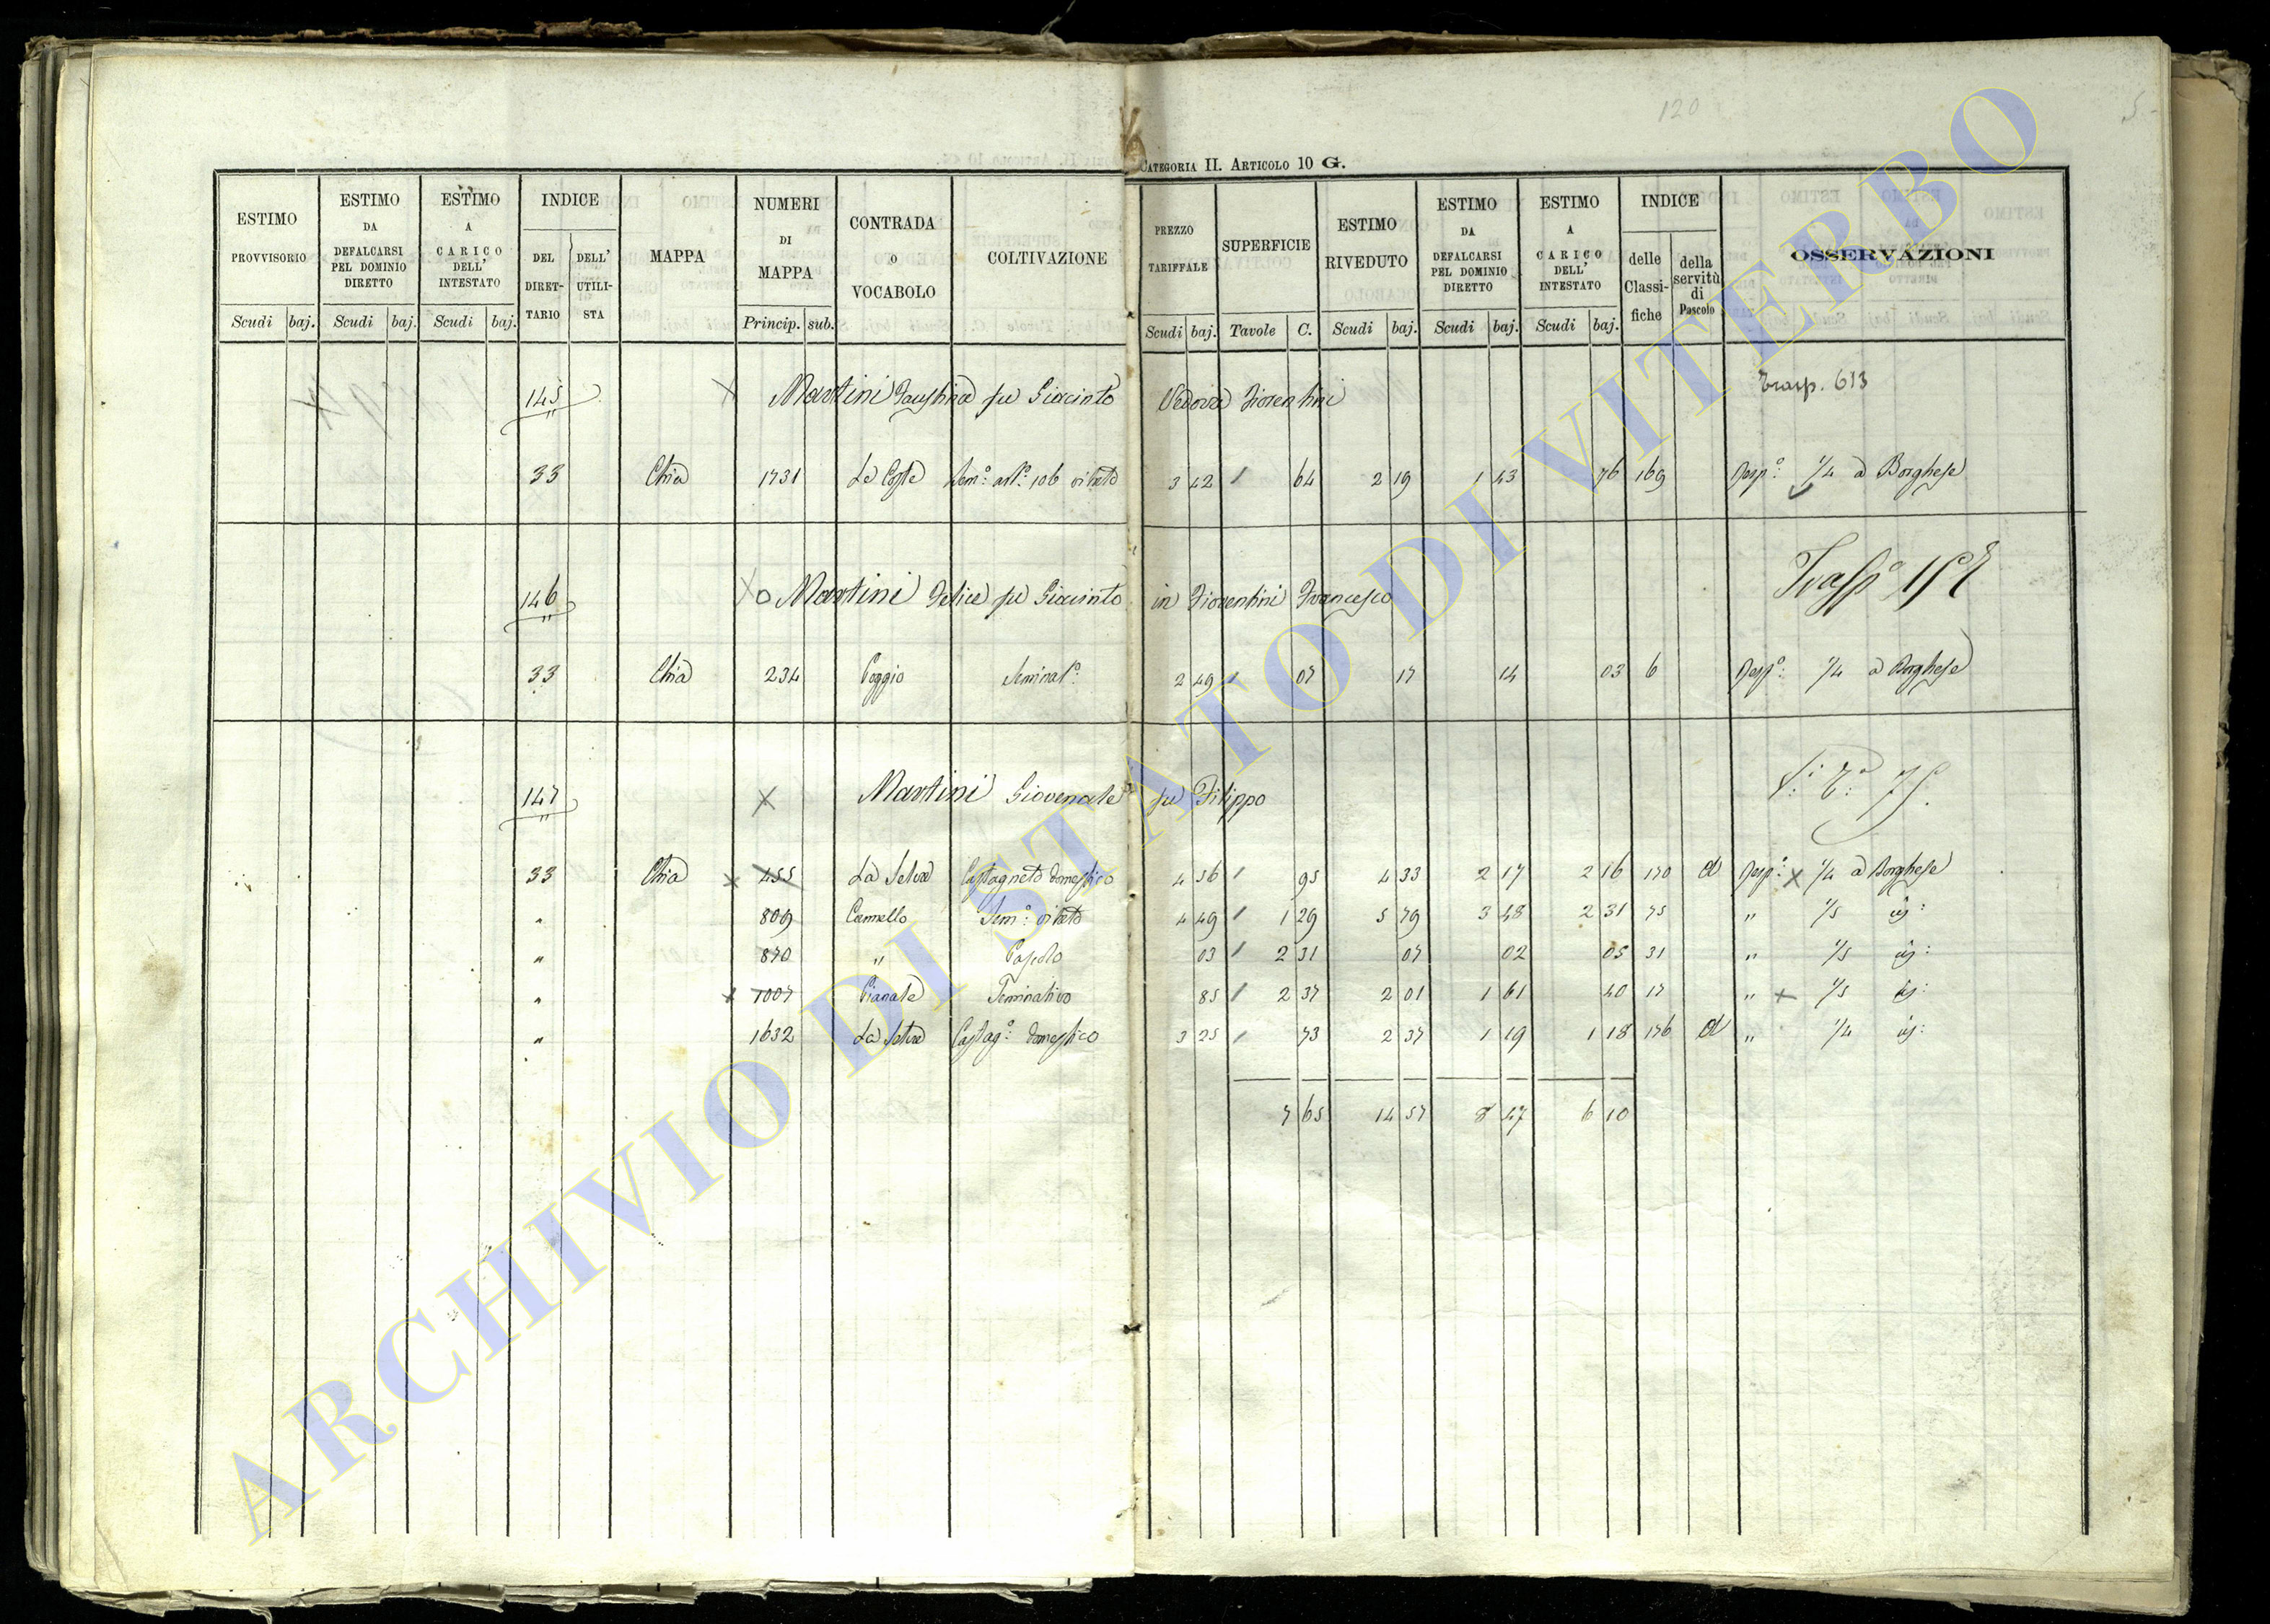 120
5
CATEGORIA II. ARTICOLO 10 G.
ESTIMO PROVVISORIO Scudi baj.
ESTIMO DA DEFALCARSI PEL DOMINIO DIRETTO Scudi baj.
ESTIMO A CARICO DELL' INTESTATO Scudi baj.
INDICE DEL DIRET-TARIO DELL' UTILI-STA
MAPPA
NUMERI DI MAPPA Princip. sub.
CONTRADA O VOCABOLO
COLTIVAZIONE
PREZZO TARIFFALE Scudi baj.
SUPERFICIE Tavole C.
ESTIMO RIVEDUTO Scudi baj.
ESTIMO DA DEFALCARSI PEL DOMINIO DIRETTO Scudi baj.
ESTIMO A CARICO DELL' INTESTATO Scudi baj.
INDICE delle Classi-fiche della servitù di Pascolo
OSSERVAZIONI
145 Martini Faustina fu Giacinto Vedova Fiorentini Trasp. 613
33 Chia 1731 Le Coste Sem.º art.º 106 vitato 3 42 1 64 2 19 1 43 76 169 Risp.º: 1/4 a Borghese
146 Martini Felice fu Giacinto in Fiorentini Francesco
33 Chia 234 Poggio Seminat.º 2 49 07 17 14 03 6 Risp.º: 1/4 a Borghese
147 Martini Giovenale fu Filippo
33 Chia 455 La Selva Castagneto domestico 4 56 95 4 33 2 17 2 16 170 a Risp.º: 1/4 a Borghese
" 809 Cannello Sem.º: vitato 4 49 1 29 5 79 3 48 2 31 75 " 1/5
" 870 " Pascolo 03 2 31 07 02 05 31 " 1/5
" 1007 Pianale Seminativo 85 2 37 2 01 1 61 40 17 " 1/5
" 1632 La Selva Castag.º: domestico 3 25 73 2 37 1 19 1 18 176 a " 1/4
7 65 14 57 8 47 6 10
ARCHIVIO DI STATO DI VITERBO